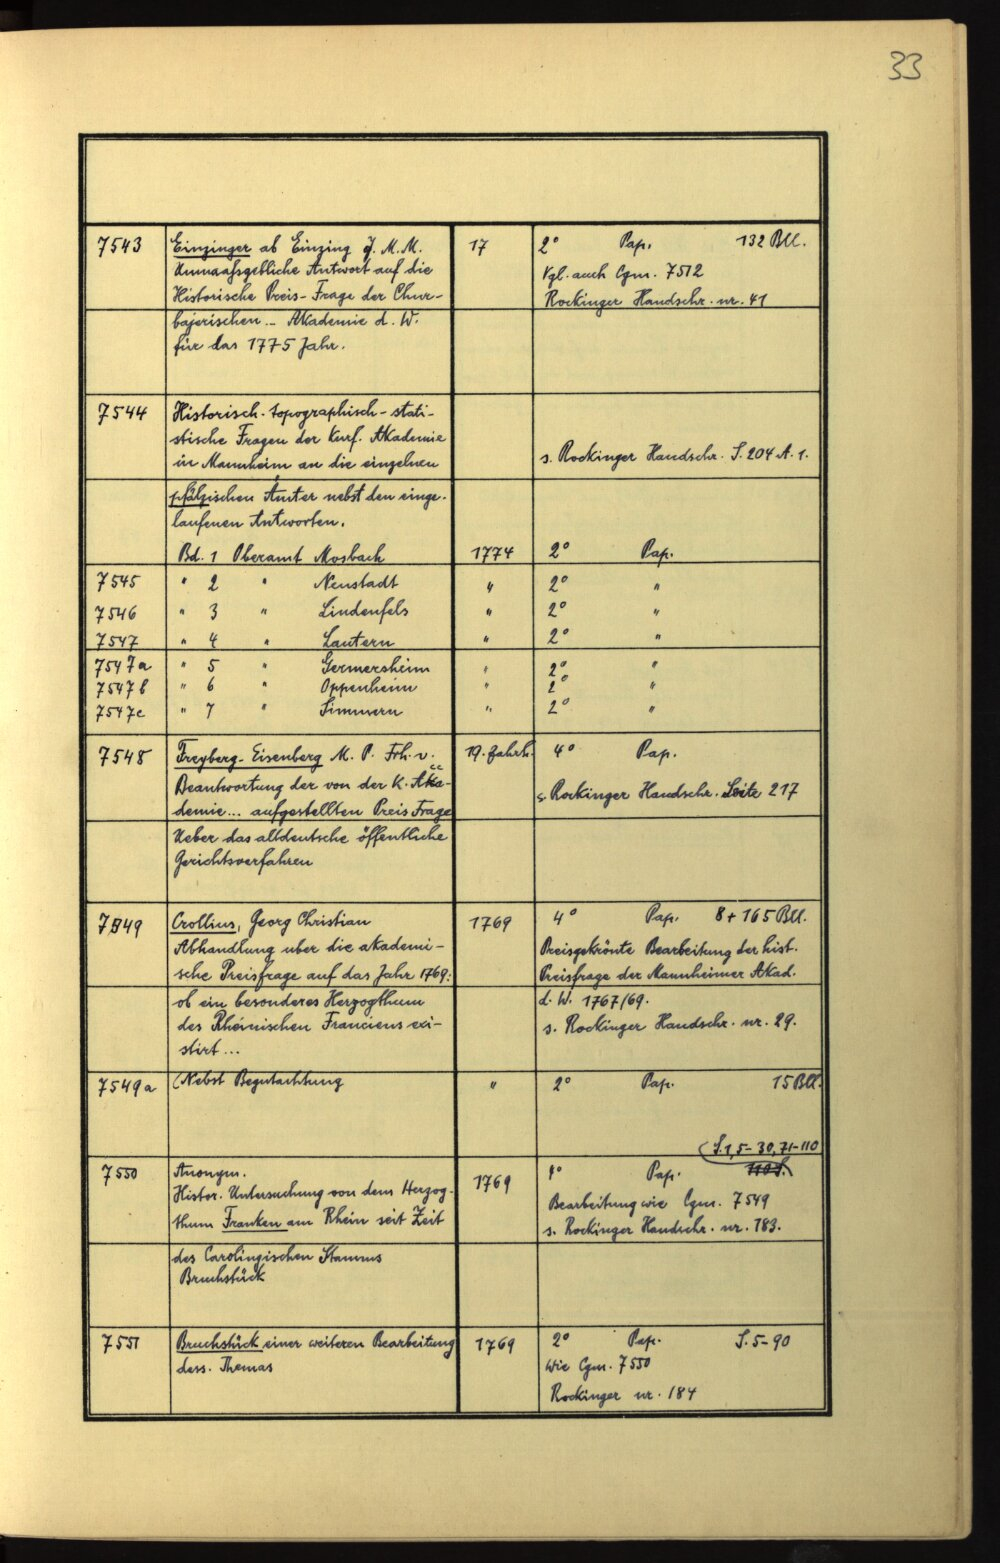 33
7543 Einzinger ab Einzing J. M. M. 17 2° Pap. 132 Bll.
Unmaafsgebliche Antwort auf die Vgl. auch Cgm. 7512
Historische Preis-Frage der Chur- Rockinger Handschr. nr. 41
bajerischen - Akademie d. W.
für das 1775 Jahr.
7544 Historisch-topographisch-stati-
stische Fragen der Kurf. Akademie
in Mannheim an die einzelnen s. Rockinger Handschr. S. 204 A. 1.
pfälzischen Ämter nebst den einge-
laufenen Antworten.
Bd. 1 Oberamt Mosbach 1774 2° Pap.
7545 " 2 " Neustadt " 2° "
7546 " 3 " Lindenfels " 2° "
7547 " 4 " Lautern " 2° "
7547a " 5 " Germersheim " 2° "
7547b " 6 " Oppenheim " 2° "
7547c " 7 " Simmern " 2° "
7548 Freyberg-Eisenberg M. P. Frh. v. 19. Jahrh. 4° Pap.
Beantwortung der von der K. Aka- s. Rockinger Handschr. Seite 217
demie... aufgestellten Preis Frage
Ueber das altdeutsche öffentliche
Gerichtsverfahren
7549 Crollius, Georg Christian 1769 4° Pap. 8 + 165 Bll.
Abhandlung uber die akademi- Preisgekrönte Bearbeitung der hist.
sche Preisfrage auf das Jahr 1769: Preisfrage der Mannheimer Akad.
ob ein besonderes Herzogthum d. W. 1767/69.
des Rheinischen Franciens exi- s. Rockinger Handschr. nr. 29.
stirt...
7549a (Nebst Begutachtung " 2° Pap. 15 Bll.
(S. 1, 5-30, 71-110
7550 Anonym. 1769 Pap. 110 S.
Histor. Untersuchung von dem Herzog- Bearbeitung wie Cgm. 7549
thum Franken am Rhein seit Zeit s. Rockinger Handschr. nr. 183.
des Carolingischen Stamms
Bruchstück
7551 Bruchstück einer weiteren Bearbeitung 1769 2° Pap. S. 5-90
dess. Themas wie Cgm. 7550
Rockinger nr. 184